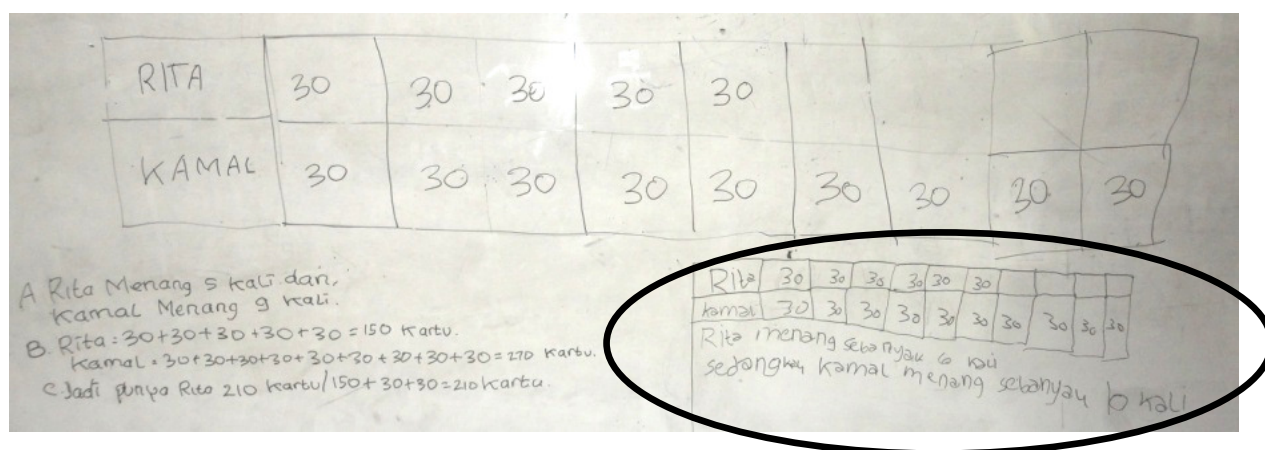 RITA 30 30 30 30 30
KAMAL 30 30 30 30 30 30 30 30 30
A Rita Menang 5 kali dan,
Kamal Menang 9 kali.
B. Rita = 30+30+30+30+30 = 150 Kartu.
Kamal = 30+30+30+30+30+30+30+30+30 = 270 Kartu.
C. Jadi punya Rita 210 Kartu/150+30+30=210 Kartu.
Rita 30 30 30 30 30 30
Kamal 30 30 30 30 30 30 30 30 30 30
Rita menang sebanyau 6 kali
sedangkan kamal menang sebanyau 10 kali